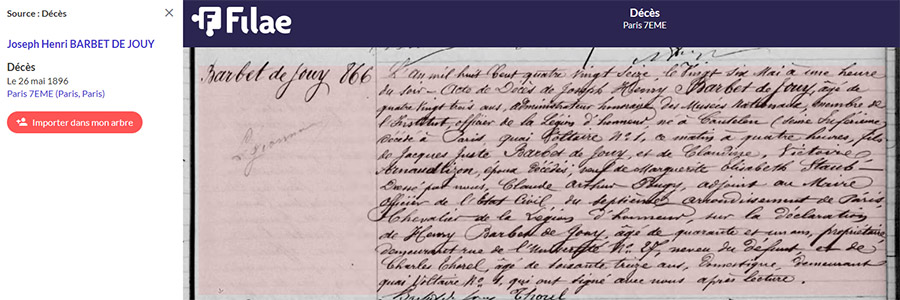 Source : Décès
Joseph Henri BARBET DE JOUY
Décès
Le 26 mai 1896
Paris 7EME (Paris, Paris)
Importer dans mon arbre
Filae
Décès
Paris 7EME
Barbet de Jouy 866
L'An mil huit Cent quatre vingt Seize, le Vingt six Mai à une heure
du soir - Acte de Décès de Joseph Henry Barbet de Jouy, age de
quatre vingt trois ans, administrateur honoraire des Musées Nationaux, membre de
l'Institut, officier de la Légion d'honneur né à Canteleu (Seine Inférieure
décédé à Paris quai Voltaire No 1, ce matin à quatre heures, fils
de Jacques Juste Barbet de Jouy, et de Claudine, Victoire
époux décédés, veuf de Marguerite Elisabeth Staub -
Dressé par nous, Claude Arthur adjoint au Maire
officier de l'Etat Civil du septième arrondissement de Paris
Chevalier de la Légion d'honneur sur la déclaration
de Henry Barbet de Jouy, âgé de quarante et un ans, propriétaire
demeurant rue de l'Université No neveu du défunt, et de
Charles Thorel, âgé de soixante treize ans, domestique, demeurant
quai Voltaire No 1, qui ont signé avec nous après lecture.